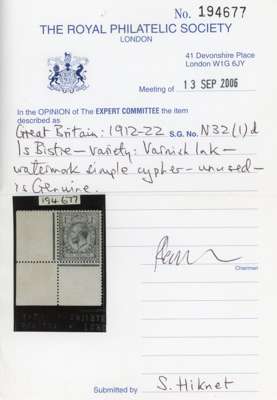 No. 194677
THE ROYAL PHILATELIC SOCIETY
LONDON
41 Devonshire Place
London W1G 6JY
Meeting of 13 SEP 2006
In the OPINION of The EXPERT COMMITTEE the item
described as
Great Britain: 1912-22 S.G. No. N32(1)d
1s Bistre - variety: Varnish Ink -
watermark simple cypher - unused -
is Genuine.
194677
Chairman
Submitted by S. Hiknet